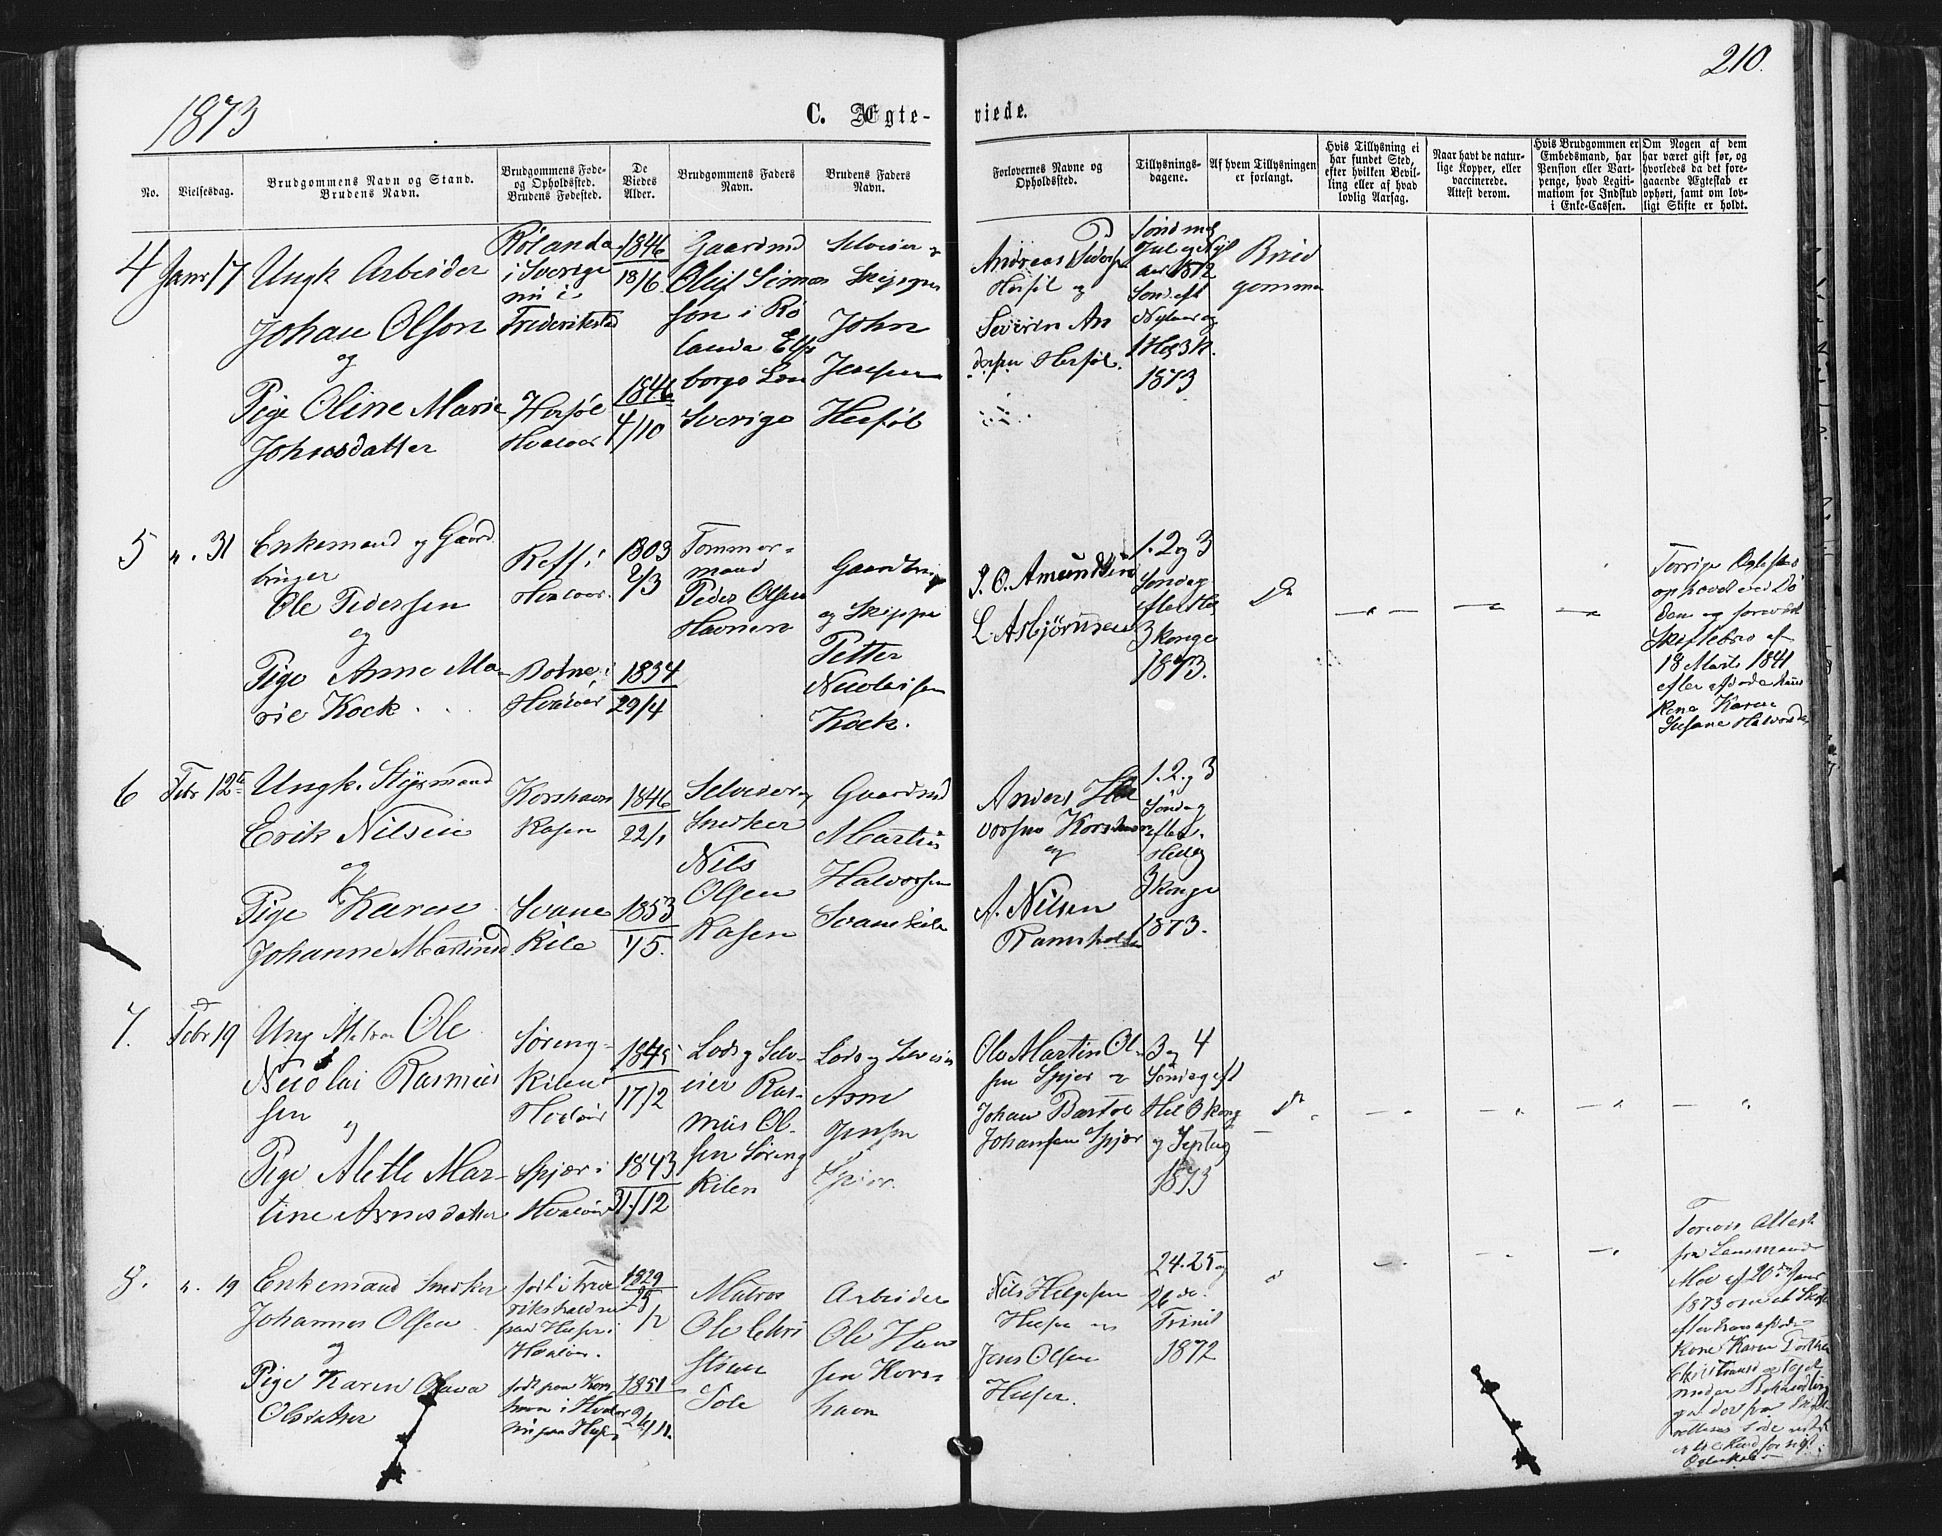 210.
1873
C. Ægte-
viede.
No.
Vielsesdag.
Brudgommens Navn og Stand.
Brudens Navn.
Brudgommens Føde-
og Opholdssted.
Brudens Fødested.
De
Viedes
Alder.
Brudgommens Faders
Navn.
Brudens Faders
Navn.
Forlovernes Navne og
Opholdssted.
Tillysnings-
dagene.
Af hvem Tillysningen
er forlangt.
Hvis Tillysning ei
har fundet Sted,
efter hvilken Bevil-
ling eller af hvad
lovlig Aarsag.
Naar havt de natur-
lige Kopper, eller
vaccinerede.
Attest derom.
Hvis Brudgommen er
Embedsmand, har
Pension eller Vart-
penge, hvad Legiti-
mation for Indskud
i Enke-Cassen.
Om Nogen af dem
har været gift før, og
hvorledes da det fore-
gaaende Ægteskab er
ophørt, samt om lov-
ligt Skifte er holdt.
4
Janr 17
Ungk Arbeider
Johan Olson
og
Pige Oline Marie
Johnsdatter
Rölanda
i Sverige
nu i
Frederikstad
Herföl
Hvaløer
1846
18/6
1846
4/10
Gaardmd
Oluf Simon
son i Rö
landa Elfs
borgs Län
Sverige
Selveier og
Skipper
John
Jensen
Herföl
Andreas Peders
Herföl og
Severin An
dersen Herföl.
Sönd mel
Jul og Nyt
aar 1872
Sönd eft
Nytaar og
1 H 3 K.
1873
Brud
gommen
5
". 31
Enkemand og Gaard
bruger
Ole Pedersen
og
Pige Anne Ma-
rie Kock
Reff i
Hvaløer.
Botne i
Hvaløer
1803
2/3
1834
29/4
Tømmer-
mand
Peder Olsen
Havnen
Gaardbruger
og Skipper
Petter
Nicolaisen
Kock.
P. O. Amundsen
L. Asbjörnsen
1. 2 og 3
Söndag
efter Hel
3 Konge
1873.
Do
Forrige Ægteskab
ophævet ved Dö
den og forevist
Skiftebrev af
18 Marts 1841
efter afdøde Hans
Kone Karen
6
Febr 12te
Ungk. Styrmand
Erik Nilsen
og
Pige Karen
Johanne Martinsd
Korshavn
Kasen
Svane
Kile
1846
22/1
1853
1/5.
Selveier og
Snedker
Nils
Olsen
Kasen
Gaardmd
Martin
Halvorsen
Svanekile
Anders Hal
vorsen Korshavn
og
A. Nilsen
Ramsholt
1. 2. og 3
Söndag
efter
Hellig
3 Konge
1873.
7.
Febr 19
Ung Matros Ole
Nicolai Rasmus
sen og
Pige Alette Mar-
tine Arnesdatter
Söreng-
Kilen i
Hvaløer
Spjær i
Hvaløer
1845
17/2
1843
31/12
Lods og Selv-
eier Ras-
mus Ol-
sen Söreng
Kilen
Lods og Selveier
Arne
Jensen
Spjær.
Ole Martin Ol-
sen Spjær og
Johan Bastol
Johansen Spjær
3 og 4
Söndag eft
Hel 3 Kong
og Septug
1873
Do
8.
". 19
Enkemand Snedker
Johannes Olsen
og
Pige Karen Olava
Olsdatter
født i Fred
rikshald nu
paa Huser i
Hvaløer.
født paa Kors
havn i Hvaløer
nu paa Huser
1829
25/2
1851
26/11.
Matros
Ole Chri
stian
Tole
Arbeider
Ole Han
sen Kors-
havn
Nils Helgesen
Huser og
Jens Olsen
Huser.
24. 25 og
26 de.
Trinit
1872
Forevist Attest
fra Lensmand
Moe af 20de Janr
1873 om at Skifte
efter hans afdøde
Kone Karen